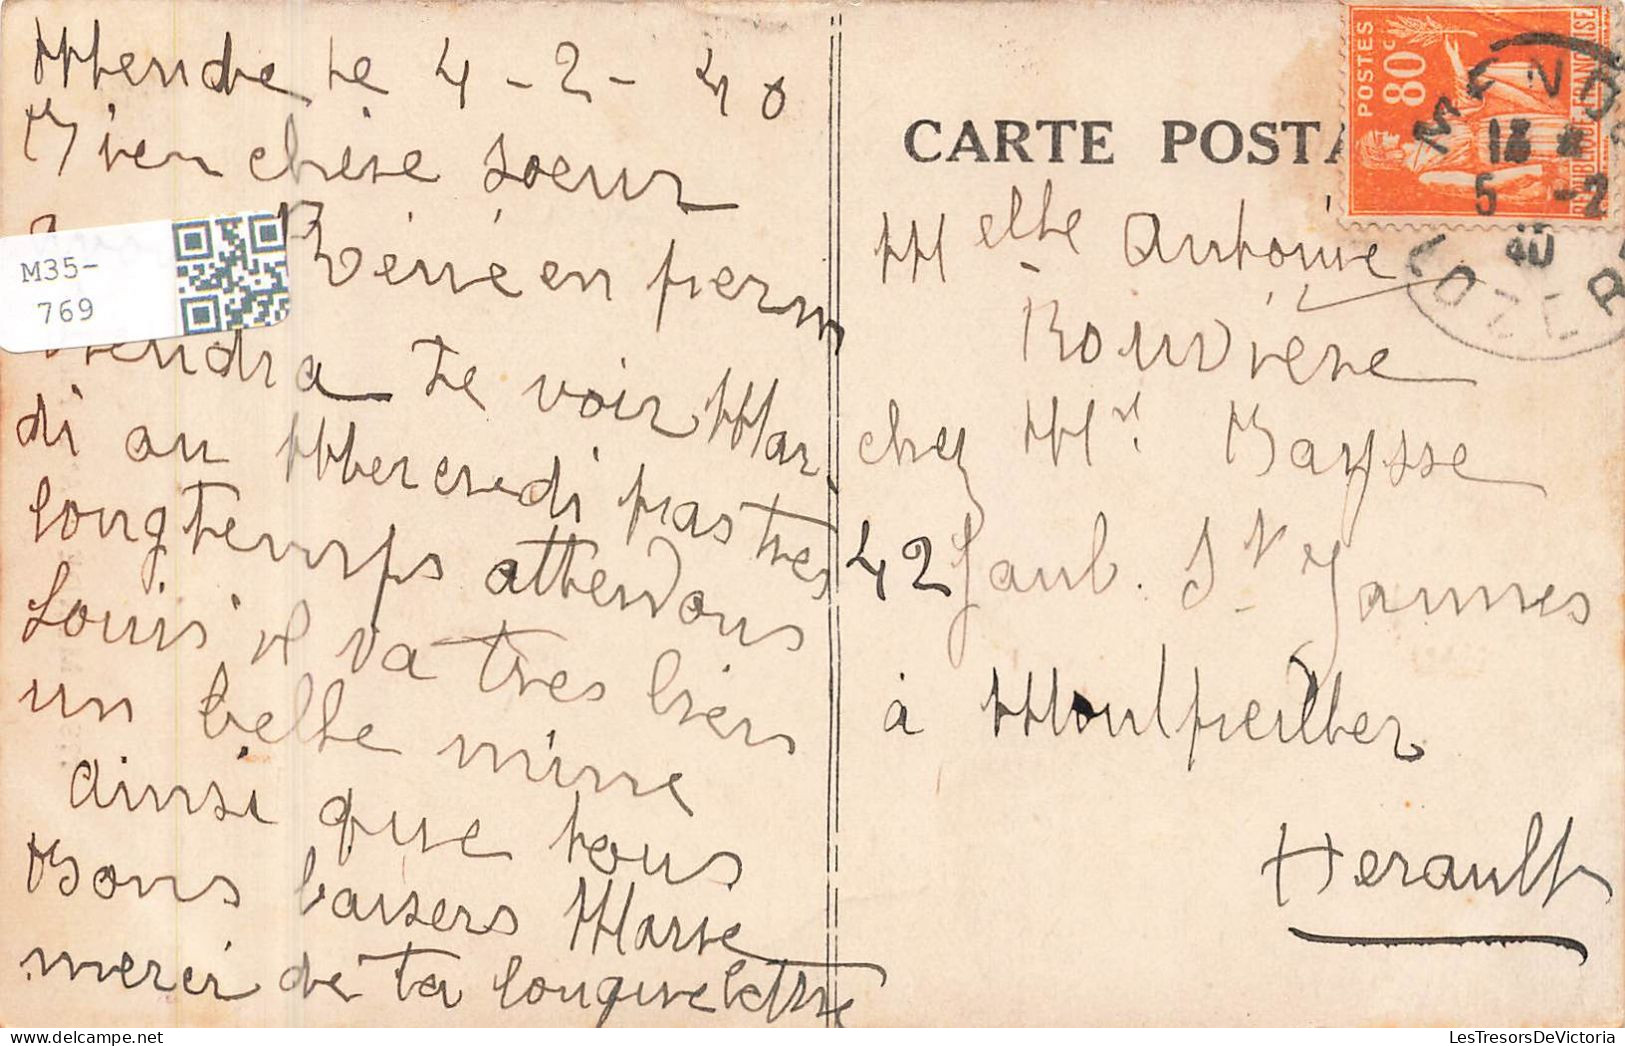 Mende le 4-2-40
Bien chère soeur
René en perm
viendra te voir Mar
di ou Mercredi pas très
longtemps attendons
Louis il va très bien
un belle mine
ainsi que tous
Bons baisers Marie
merci de ta longue lettre
CARTE POSTA
POSTES
80c
REPUBLIQUE FRANÇAISE
MENDE
5 -2
40
LOZERE
Melle Antoinie
Rouvière
chez Mr. Baysse
42 Faub. St Jaumes
à Montpellier
Herault
M35-
769
LesTresorsDeVictoria.com